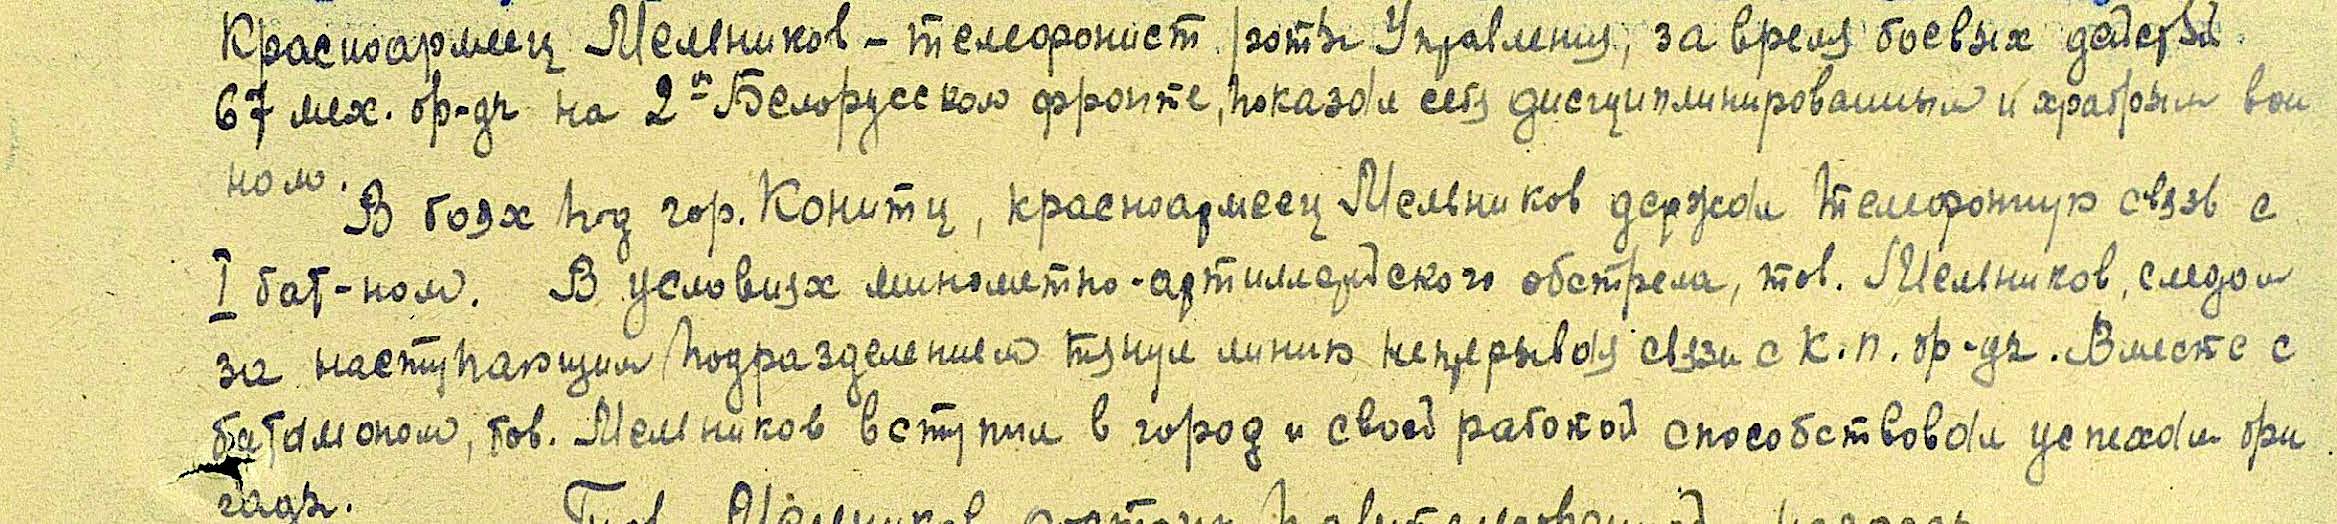 Красноармеец Мельников – телефонист роты Управления, за время боевых действий
67 мех. бр-ды на 2м Белорусском фронте, показал себя дисциплинированным и храбрым вои
ном.
В боях под гор. Конитц, красноармеец Мельников держал телефонную связь с
I бат-ном. В условиях минометно-артиллерийского обстрела, тов. Мельников, следом
за наступающим подразделением тянул линию непрерывая связи с К.П. бр-ды. Вместе с
батальоном, тов. Мельников вступил в город и своей работой способствовал успехам бри
гады.
Тов. Мельников достоин правительственной награды